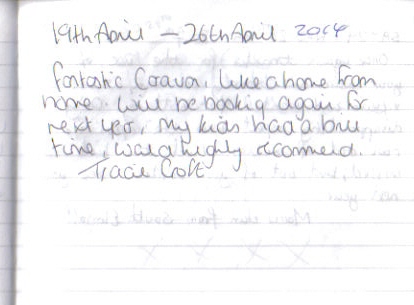 19th April – 26th April 2014
fantastic Caravan, like a home from
home will be booking again for
next year, my kids had a brill
time, would highly recommend.
Tracie Croft